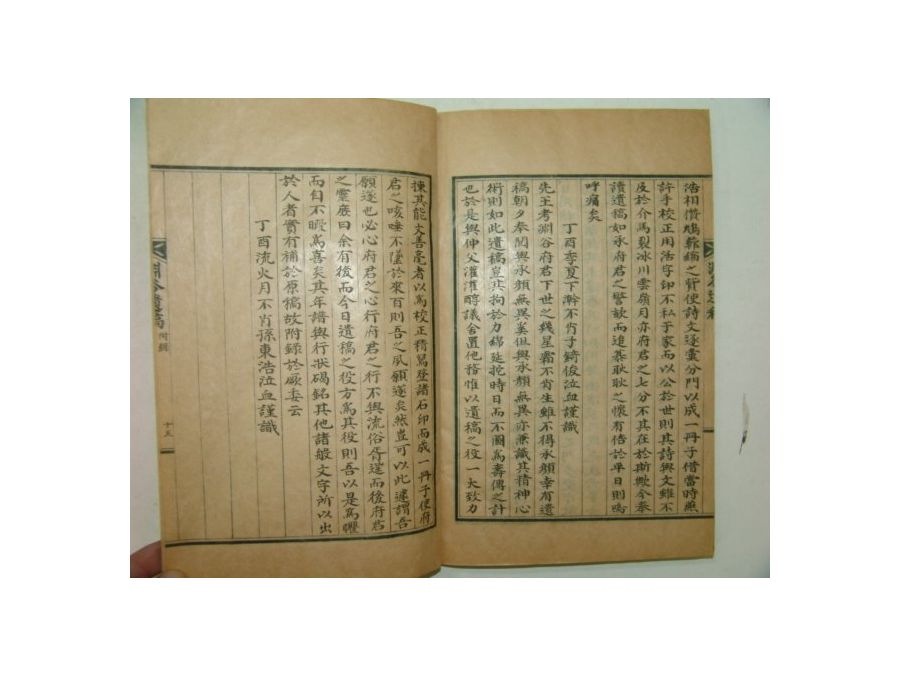 浩相償鳩籲編之贊使詩文逐彙分門以成一冊子借當時
許手校正用活字印不私于家而以公於世則其詩與文雖不
及於介馬裂冰川雲嶺月亦府君之七分不其在於斯歟今奉
讀遺稿如承府君之警欬而追慕耿耿之懷有倍於平日則嗚
呼痛矣
丁酉季夏下澣不肖子錡俊泣血謹識
先王考淵谷府君下世之幾星霜不肖生雖不得承顔幸有遺
稿朝夕奉閱與承顔無異峯但與承顔無異亦兼識其精神心
術則如此遺稿豈其拘於力綿延挖時日而不圖為壽傳之計
也於是與仲父灌灌醇議舍置他務惟以遺稿之役一大致力
揀其能文善毫者以為校正精寫登諸石印而成一冊子使府
君之咳唾不墜於來百則吾之夙願遂矣然豈可以此遽謂吾
願遂也必心府君之心行府君之行不與流俗胥溺而後府君
之靈庶曰余有後而今日遺稿之役方為其役則吾以是為懼
而自不暇為喜矣其年譜與行狀碣銘其他諸般文字所以出
於人者實有補於原稿故附錄於厥委云
丁酉流火月不肖孫東浩泣血謹識
淵谷遺稿
附錄
十五